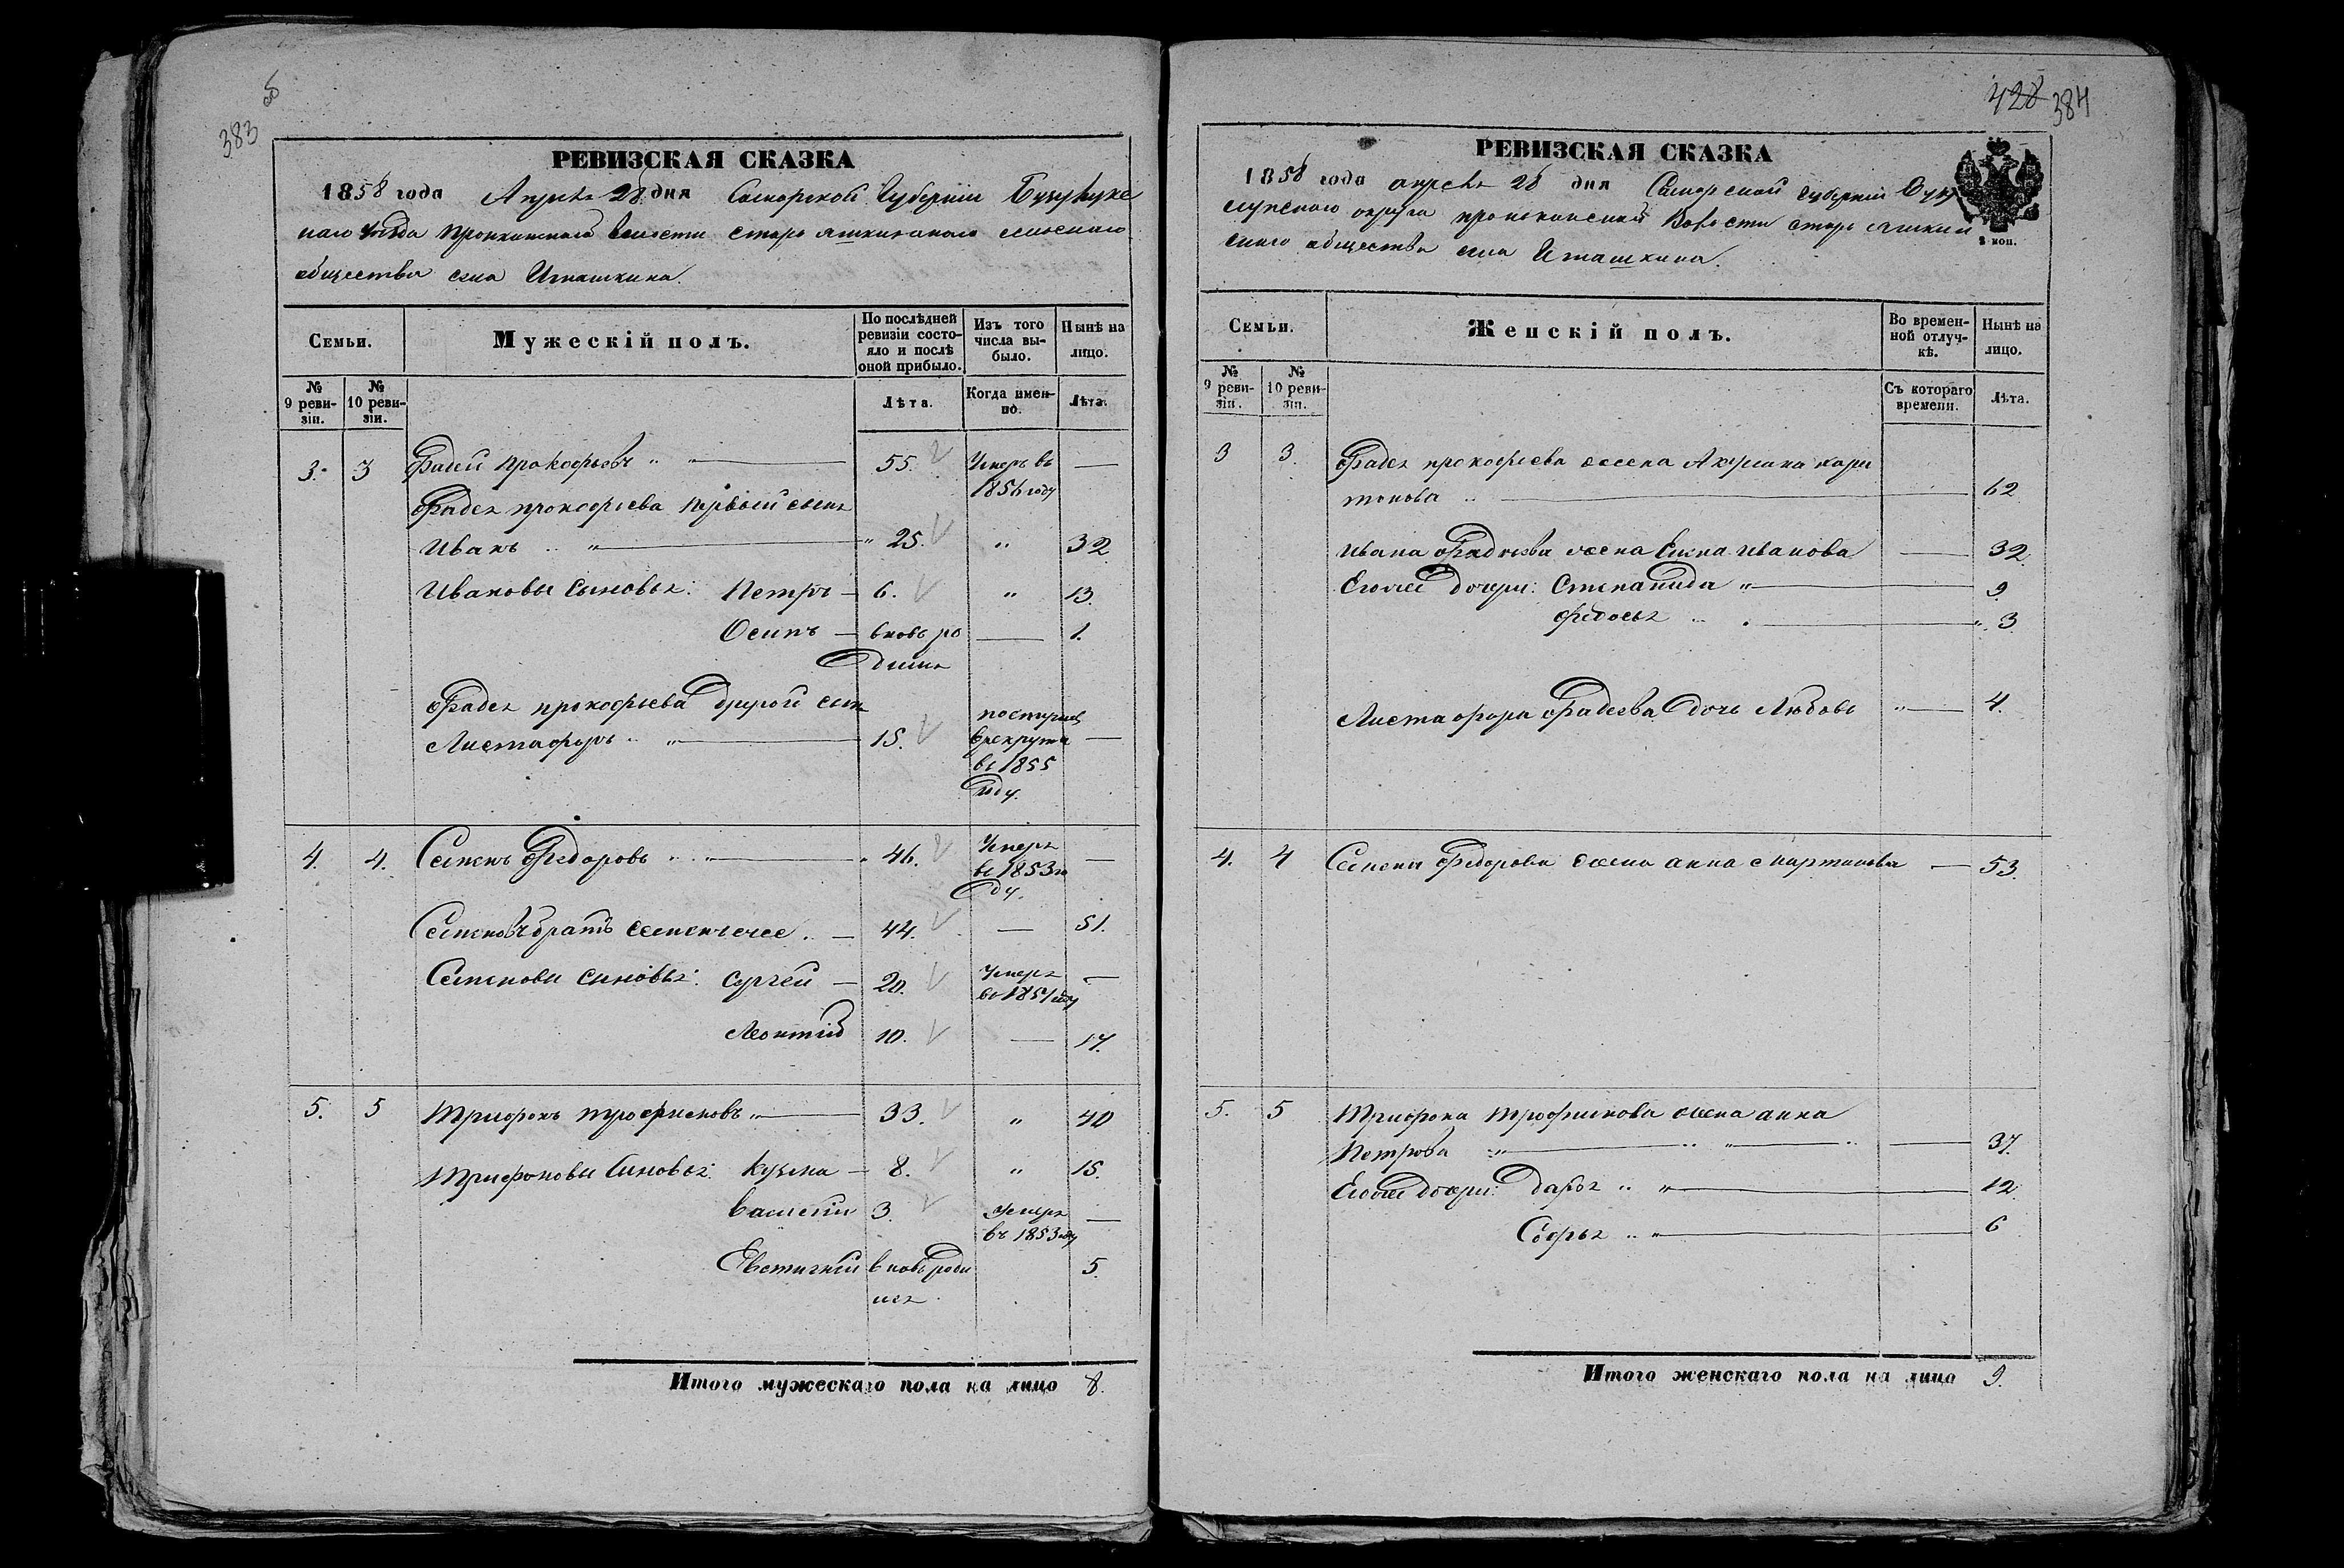 383
об
РЕВИЗСКАЯ СКАЗКА
1858 года Апреля 28 дня Самарской Губернии Бугурусланс
наго Пронкинской Волости старо яшкинскаго сельскаго
общества села Иташкина.
Семьи.
Мужескій полъ.
По послѣдней
ревизіи состо-
яло и послѣ
оной прибыло.
Изъ того
числа вы-
было.
Нынѣ на
лицо.
№
9 реви-
зіи.
№
10 реви-
зіи.
Лѣта.
Когда имен-
но.
Лѣта.
3. 3 Фадей Прокофьевъ 55. Умеръ въ —
1856 году
Фадея прокофьева первый сынъ
Иванъ " 25. " 32
Ивановы сыновья: Петръ — 6. " 13.
Осипъ — вновь ро — 1.
дился
Фадея прокофьева другой сынъ поступилъ
Листафоръ " 15. врекруты —
въ 1855
году.
4. 4. Семенъ Федоровъ 46. Умеръ —
въ 1853 го
ду.
Семеновъ братъ Семенъ же — 44. — 51.
Семеновы сыновья: Сергей — 20. Умеръ —
въ 1857 году
Леонтій 10. — 17.
5. 5 Трифонъ трофимовъ " 33. " 40
Трифоновы Сыновья: Кузма — 8. " 15.
Василий 3. Умеръ —
въ 1853 году
Евстигней вновь роди 5.
лся
Итого мужескаго пола на лицо 8.
428 384
РЕВИЗСКАЯ СКАЗКА
1858 года апреля 28 дня Самарской губернии Бугу
сланскаго округа пронкинской Волости старо яшкин
скаго общества села Иташкина.
2 коп.
Семьи.
Женскій полъ.
Во времен-
ной отлуч-
кѣ.
Нынѣ на
лицо.
№
9 реви-
зіи.
№
10 реви-
зіи.
Съ котораго
времени.
Лѣта.
3 3. Фадея прокофьева жена Акулина хари
тонова 62
Ивана Фадеева жена Елена Иванова — 32.
Егоже дочери: Степанида " 9.
Федосья 3
Листафора Фадеева дочь Любовь " 4.
4. 4 Семена Федорова жена анна мартинова — 53.
5. 5 Трифона Трофимова жена анна
Петрова " 37.
Егоже дочери: Дарья " 12
Софья " 6
Итого женскаго пола на лицо 9.